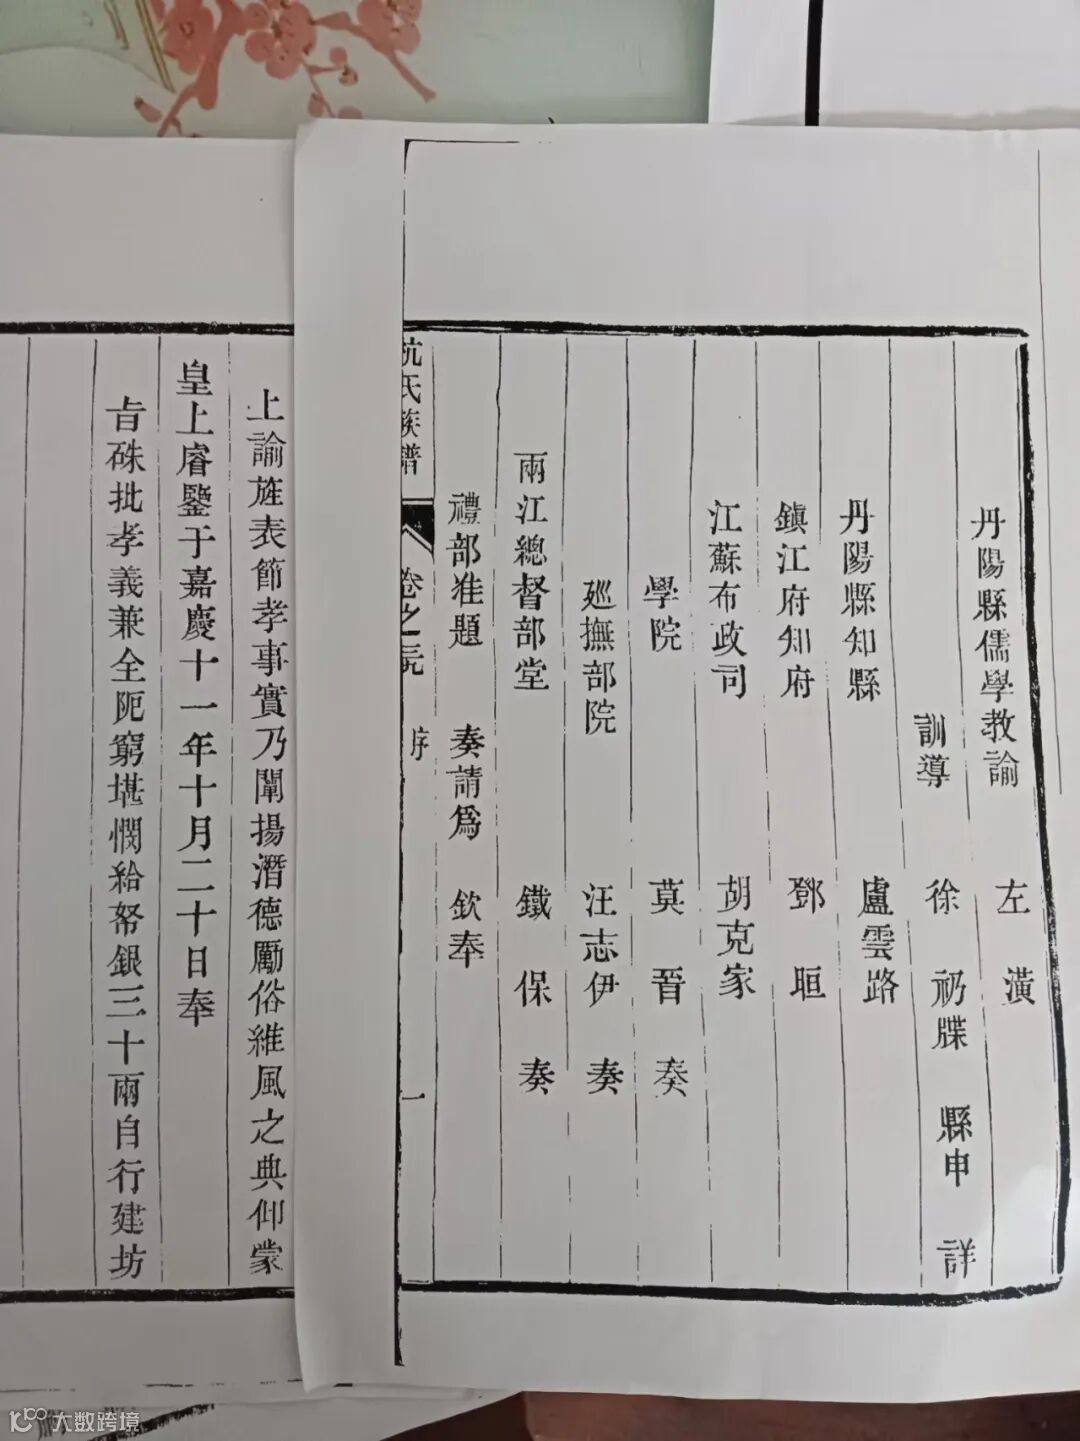 丹陽縣儒學教諭 左潢
訓導 徐礽牒 縣申 詳
丹陽縣知縣 盧雲路
鎮江府知府 鄧晅
江蘇布政司 胡克家
學院 莫晉奏
廵撫部院 汪志伊奏
兩江總督部堂 鐵保奏
禮部准題 奏請爲 欽奉
氏族譜 卷之元 序 一
上諭旌表節孝事實乃闡揚潛德勵俗維風之典仰蒙
皇上睿鑒于嘉慶十一年十月二十日奉
旨硃批孝義兼全阨窮堪憫給帑銀三十兩自行建坊
大数跨境